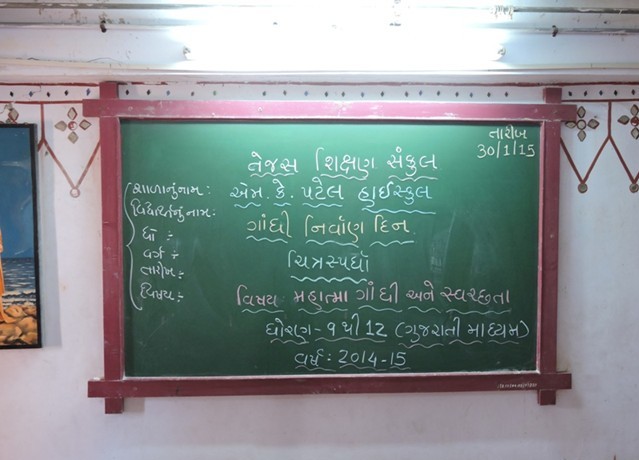 તારીખ
30/1/15
તેજસ શિક્ષણ સંકુલ
એમ. કે. પટેલ હાઈસ્કુલ
ગાંધી નિર્વાણ દિન
ચિત્રસ્પર્ધા
વિષય: મહાત્મા ગાંધી અને સ્વચ્છતા
ધોરણ - ૧ થી 12 (ગુજરાતી માધ્યમ)
વર્ષ: 2014-15
શાળાનું નામ:
વિદ્યાર્થીનું નામ:
ધો :-
વર્ગ :-
તારીખ :-
વિષય :-